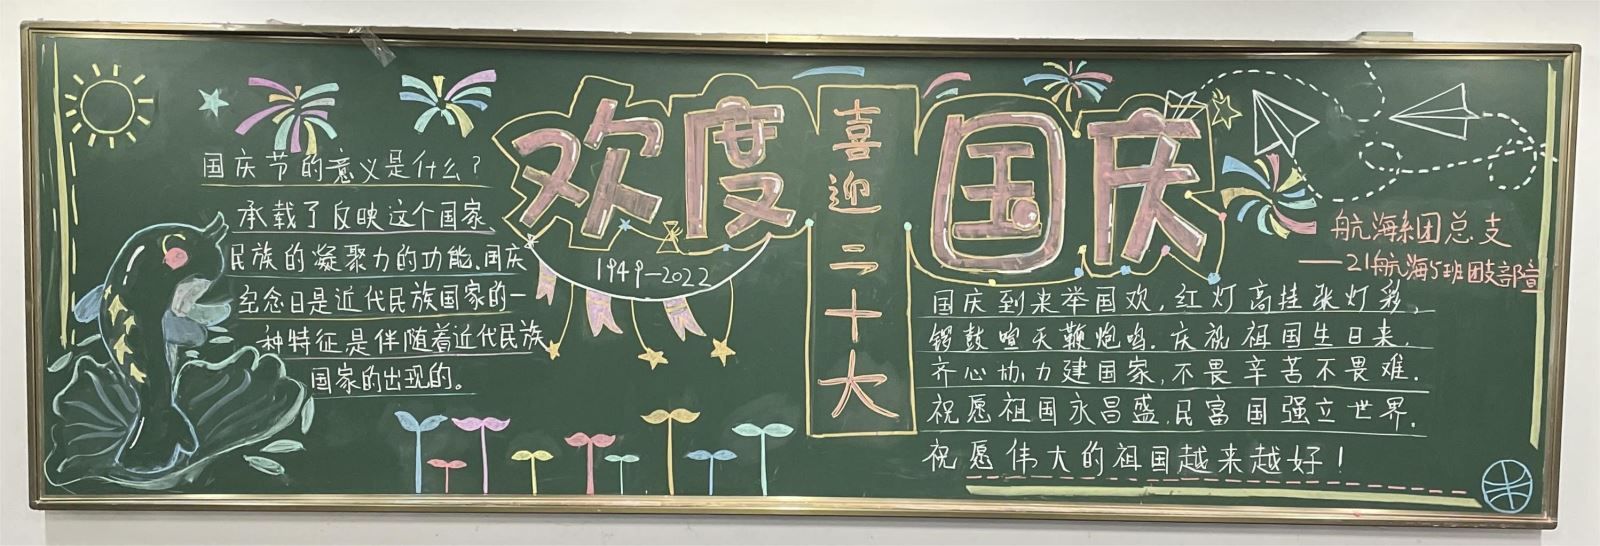 国庆节的意义是什么?
承载了反映这个国家
民族的凝聚力的功能.国庆
纪念日是近代民族国家的一
种特征是伴随着近代民族
国家的出现的。
欢度
1949-2022
喜迎二十大
国庆
航海系团总支
——21航海5班团支部宣
国庆到来举国欢,红灯高挂张灯彩,
锣鼓喧天鞭炮鸣.庆祝祖国生日来,
齐心协力建国家,不畏辛苦不畏难.
祝愿祖国永昌盛,民富国强立世界.
祝愿伟大的祖国越来越好!